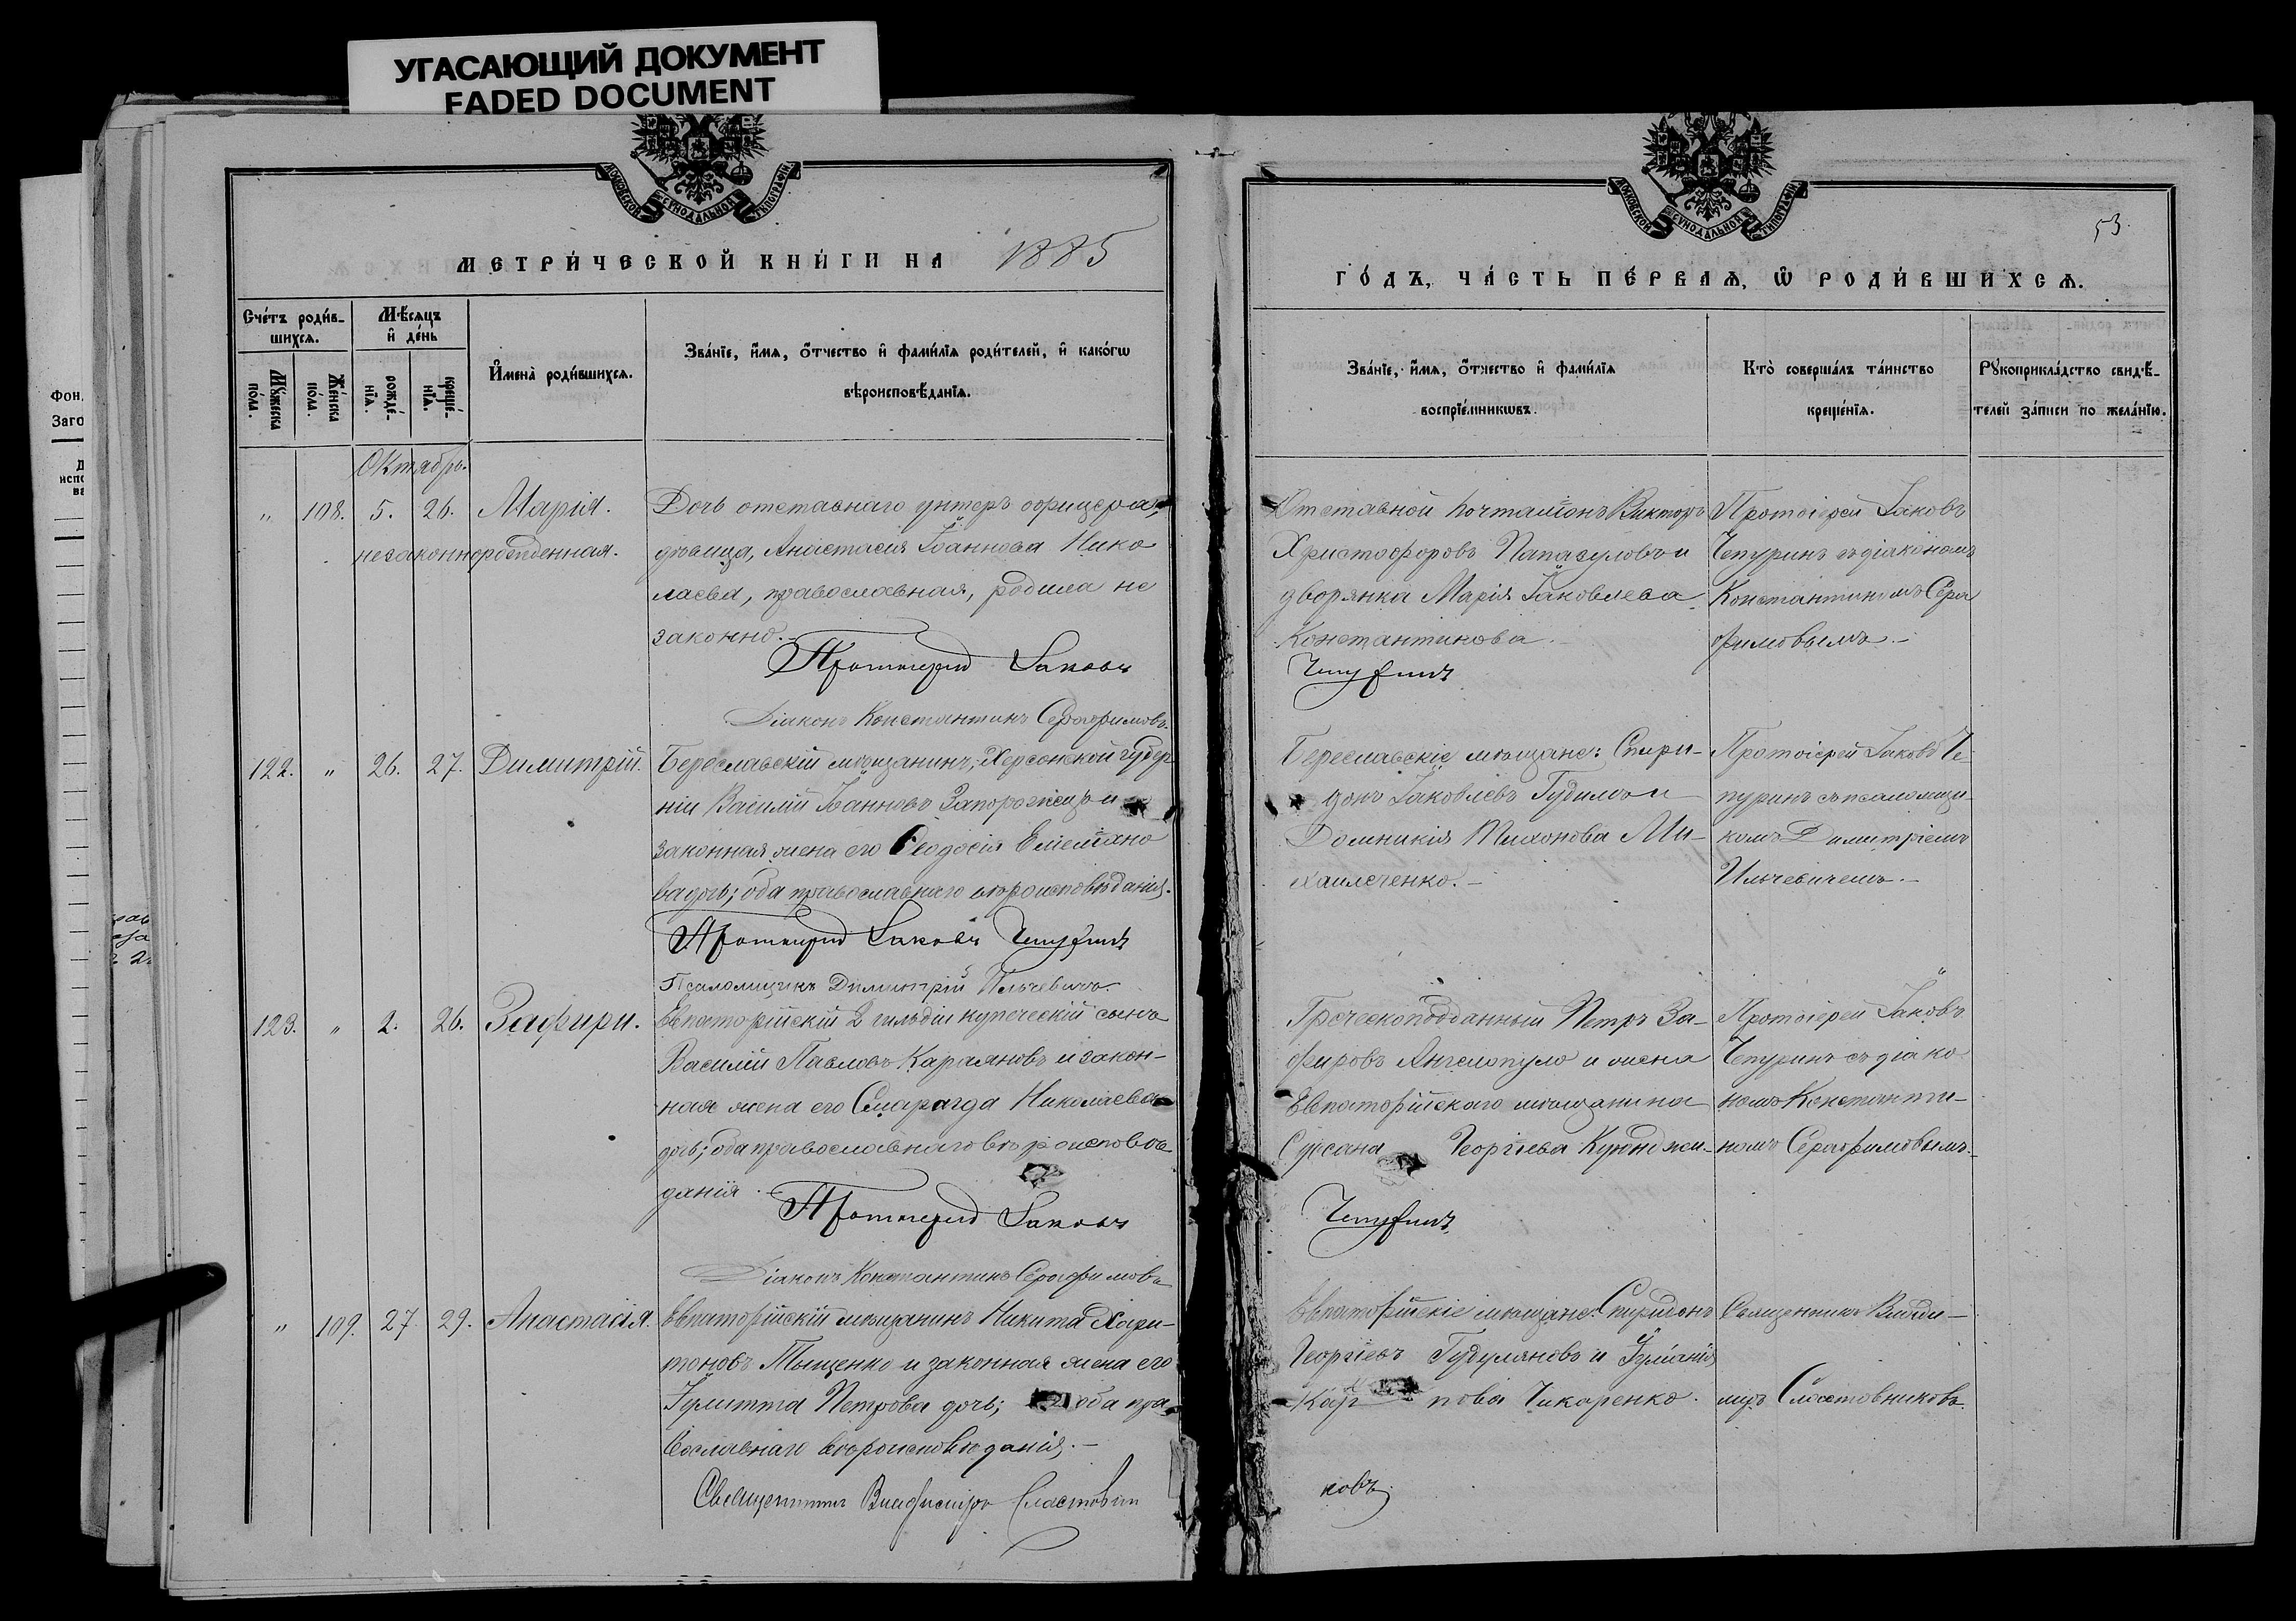 УГАСАЮЩИЙ ДОКУМЕНТ
FADED DOCUMENT
МОСКОВСКОЙ СѴНОДАЛЬНОЙ ТИПОГРАФІИ.
МЕТРИ́ЧЕСКОЙ КНИ́ГИ НА 1885
Сче́тъ роди́в-
шихсѧ.
Мѣ́сѧцъ
и҆ де́нь
Мꙋ́жеска
по́ла.
Же́нска
по́ла.
рожде́-
нїѧ.
креще́-
нїѧ.
И҆мена̀ роди́вшихсѧ.
Зва́нїе, и҆́мѧ, ѻ҆́тчество и҆ фами́лїѧ роди́телей, и҆ како́гѡ
вѣроисповѣ́данїѧ.
Октябрь.
" 108. 5. 26. Марія.
незаконнорожденная.
Дочь отставнаго унтеръ офицера,
дѣвица, Анастасія Іоаннова Нико
лаева, православная, родила не
законно.
Протоіерей Іаковъ
Діаконъ Константинъ Серафимовъ.
122. " 26. 27. Димитрій.
Береславскій мѣщанинъ, Херсонской губер
ніи Василій Іоанновъ Запорожецъ и
законная жена его Ѳеодосія Емельяно
ва дочь; оба православнаго вѣроисповѣданія.
Протоіерей Іаковъ Чепуринъ
Псаломщикъ Димитрій Ильчевичъ.
123. " 2. 26. Зафири.
Евпаторійскій 2 гильдіи купеческій сынъ
Василій Павловъ Караяновъ и закон-
ная жена его Смарагда Николаева
дочь; оба православнаго вѣроисповѣ
данія.
Протоіерей Іаковъ
Діаконъ Константинъ Серафимовъ
" 109. 27. 29. Анастасія.
Евпаторійскій мѣщанинъ Никита Хари-
тоновъ Тыщенко и законная жена его
Іулитта Петрова дочь; оба пра
вославнаго вѣроисповѣданія.
Священникъ Владиміръ Сластовни
53.
МОСКОВСКОЙ СѴНОДАЛЬНОЙ ТИПОГРАФІИ.
ГО́ДЪ, ЧА́СТЬ ПЕ́РВАѦ, Ѡ҆ РОДИ́ВШИХСѦ.
Зва́нїе, и҆́мѧ, ѻ҆́тчество и҆ фами́лїѧ
воспрїе́мникѡвъ.
Кто̀ соверша́лъ та́инство
креще́нїѧ.
Рꙋкоприкла́дство свидѣ́-
телей за́писи по жела́нїю.
Отставной почталіонъ Викторъ
Христофоровъ Папасуловъ и
дворянка Марія Іаковлева
Константинова.
Чепуринъ
Протоіерей Іаковъ
Чепуринъ съ діакономъ
Константиномъ Сера
фимовымъ.
Береславскіе мѣщане: Спири-
донъ Іаковлевъ Гудимъ и
Домникія Тихонова Ми-
хайлеченко.
Протоіерей Іаковъ Че-
пуринъ съ псаломщи-
комъ Димитріемъ
Ильчевичемъ.
Греческоподданный Петръ За-
фировъ Ангелопуло и жена
Евпаторійскаго мѣщанина
Сусана Георгіева Куюнджи-
Чепуринъ
Протоіерей Іаковъ
Чепуринъ съ діако
номъ Константи-
номъ Серафимовымъ.
Евпаторійскіе мѣщане: Спиридонъ
Георгіевъ Гудуляновъ и Іуліанія
Кар пова Чикаренко.
ковъ
Священникъ Влади-
міръ Сластовниковъ.